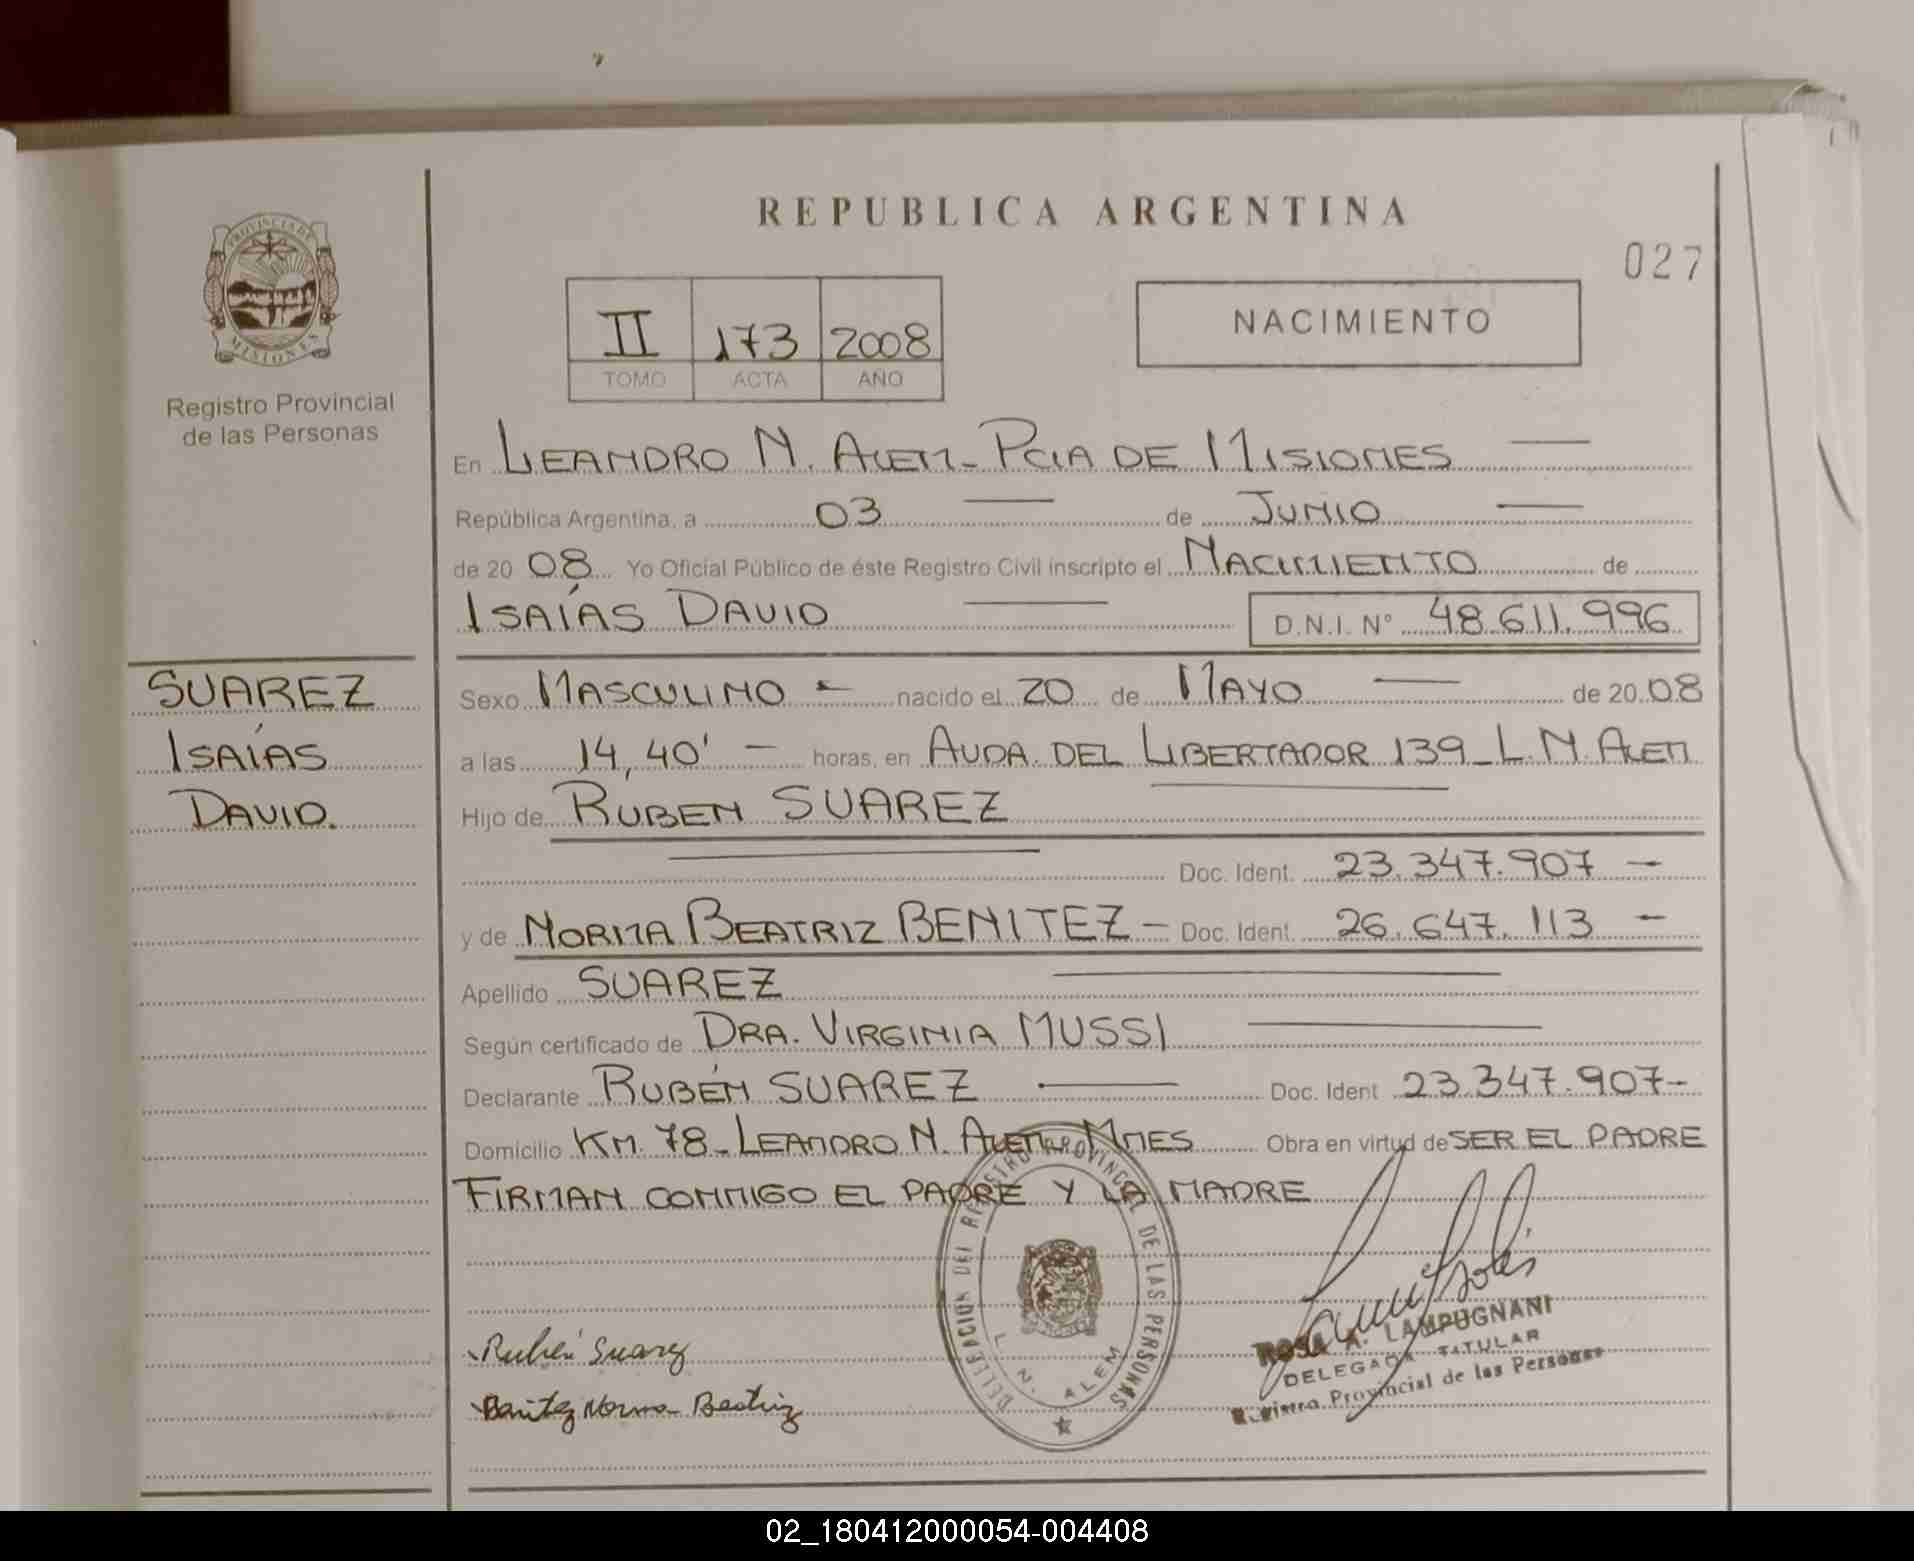 PROVINCIA DE
MISIONES
Registro Provincial
de las Personas
REPUBLICA ARGENTINA
027
II 173 2008
TOMO ACTA AÑO
NACIMIENTO
En LEANDRO N. ALEM - PCIA DE MISIONES
República Argentina, a 03 de JUNIO
de 20 08 Yo Oficial Público de éste Registro Civil inscripto el NACIMIENTO de
ISAÍAS DAVID D.N.I. N° 48.611.996
SUAREZ
ISAÍAS
DAVID.
Sexo MASCULINO - nacido el 20 de MAYO de 20 08
a las 14,40' - horas, en AVDA. DEL LIBERTADOR 139 - L.N. ALEM
Hijo de RUBEN SUAREZ
Doc. Ident. 23.347.907 -
y de NORMA BEATRIZ BENITEZ - Doc. Ident. 26.647.113 -
Apellido SUAREZ
Según certificado de DRA. VIRGINIA MUSSI
Declarante RUBÉN SUAREZ Doc. Ident 23.347.907-
Domicilio KM. 78 - LEANDRO N. ALEM - MNES Obra en virtud de SER EL PADRE
FIRMAN CONMIGO EL PADRE Y LA MADRE
Rubén Suarez
Benitez Norma Beatriz
DELEGACION DEL REGISTRO PROVINCIAL DE LAS PERSONAS
L. N. ALEM
ROSA A. LAMPUGNANI
DELEGADA TITULAR
Registro Provincial de las Personas
02_180412000054-004408